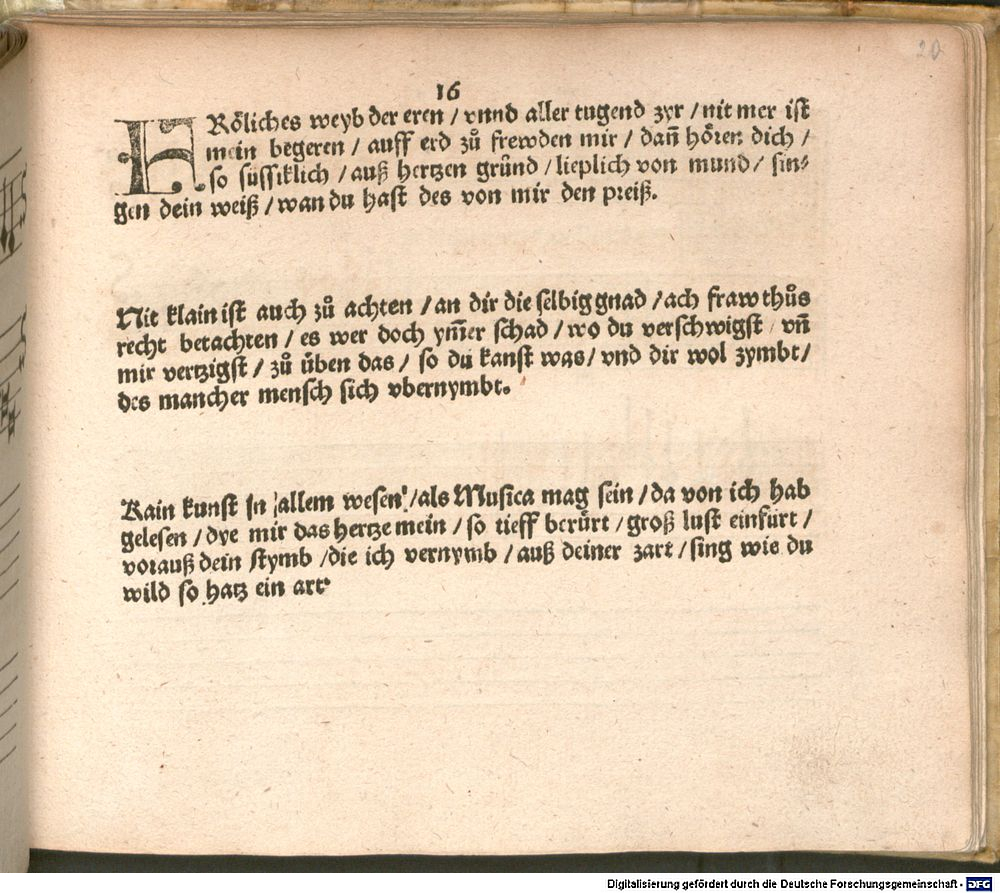 20
16
FRoͤliches weyb der eren / vnnd aller tugend zyr / nit mer ist
mein begeren / auff erd zuͦ frewden mir / dañ hoͤren dich /
so suͤssiklich / auß hertzen gruͦnd / lieplich von mund / sin⸗
gen dein weiß / wan du hast des von mir den preiß.
Nit klain ist auch zuͦ achten / an dir die selbig gnad / ach fraw thuͦs
recht betachten / es wer doch ym̃er schad / wo du verschwigst / vñ
mir vertzigst / zuͦ uͤben das / so du kanst was / vnd dir wol zymbt /
des mancher mensch sich vbernymbt.
Kain kunst jn allem wesen / als Musica mag sein / da von ich hab
gelesen / dye mir das hertze mein / so tieff beruͤrt / groß lust einfuͤrt /
vorauß dein stymb / die ich vernymb / auß deiner zart / sing wie du
wild so hatz ein art
Digitalisierung gefördert durch die Deutsche Forschungsgemeinschaft - DFG